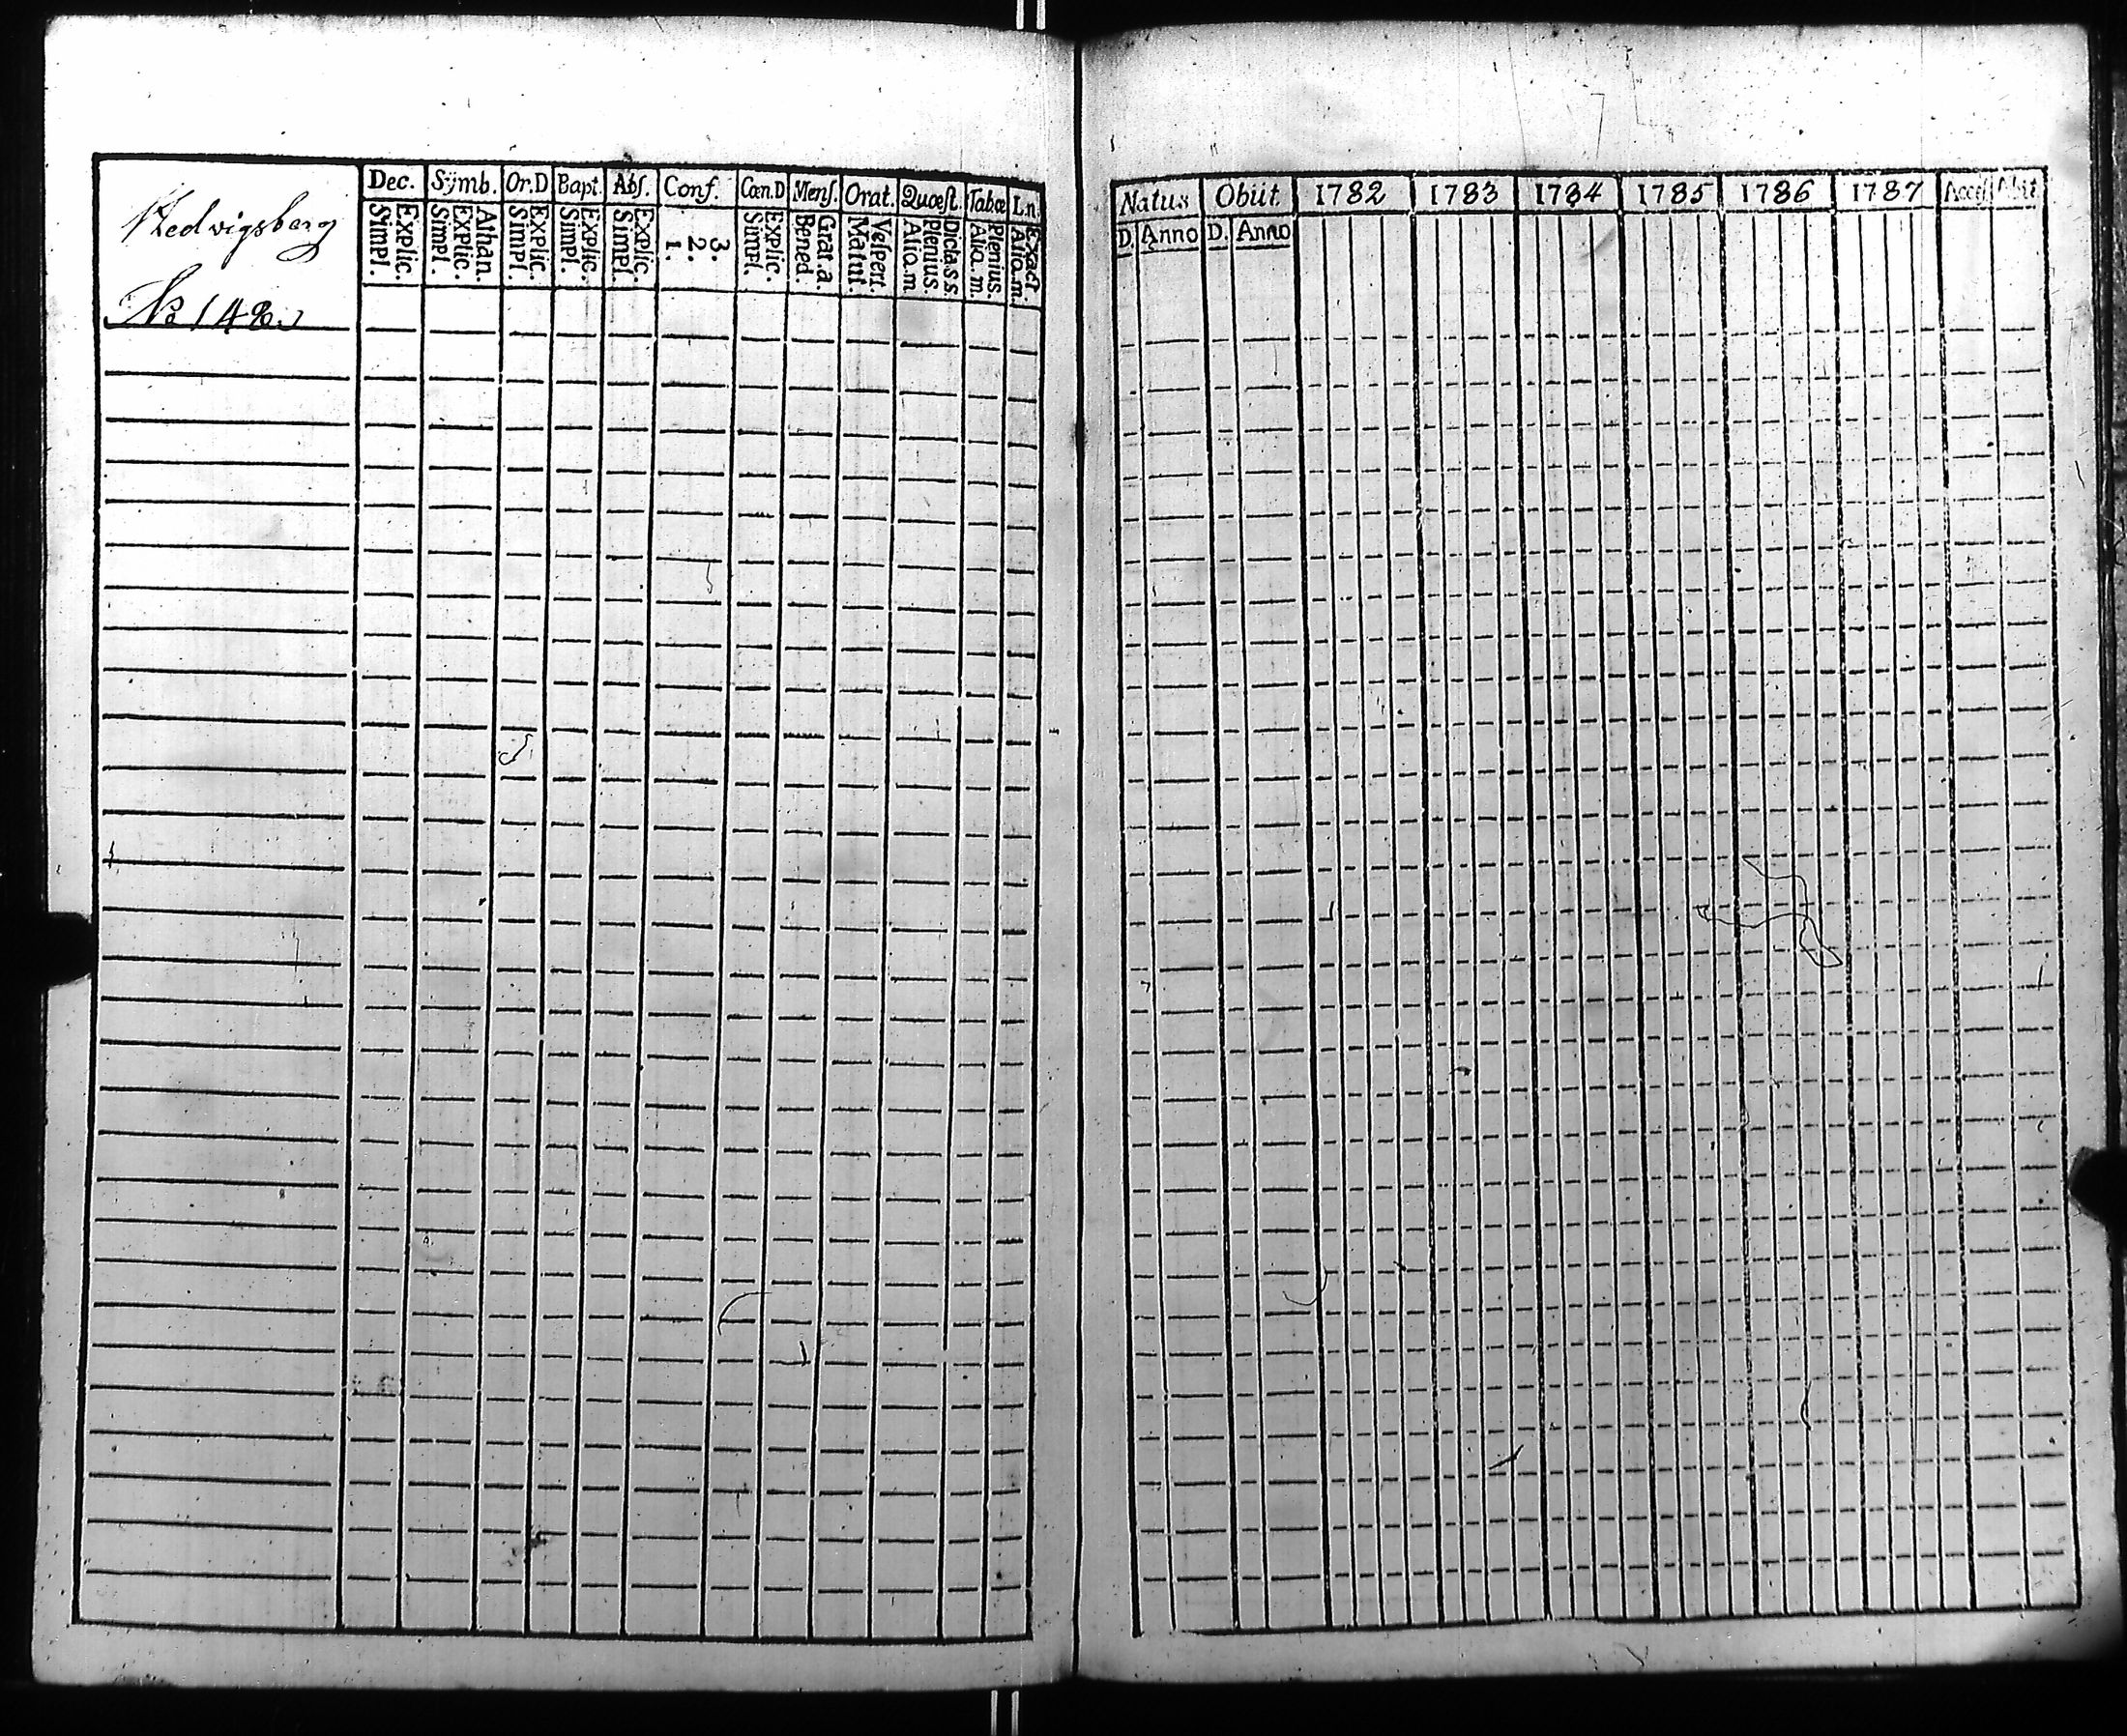 Hedvigsberg
Dec. Sÿmb. Or.D Bapt. Abs. Conf. Cœn.D Mens. Orat. Quœst. Tabœ L.n.
Simpl. Explic. Simpl. Explic. Athan. Simpl. Explic. Simpl. Explic. Simpl. Explic. 1. 2. 3. Simpl. Explic. Bened. Grat.a. Matut. Vespert. Alio.m Plenius. Dicta.s.s. Alio.m. Plenius. Alio.m. Exact.
No 148.
Natus Obiit. 1782 1783 1784 1785 1786 1787 Access. Abit
D. Anno D. Anno